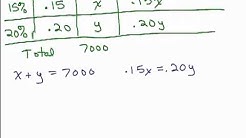 15% .15 x .15x
20% .20 y .20y
Total 7000
x + y = 7000 .15x = .20y